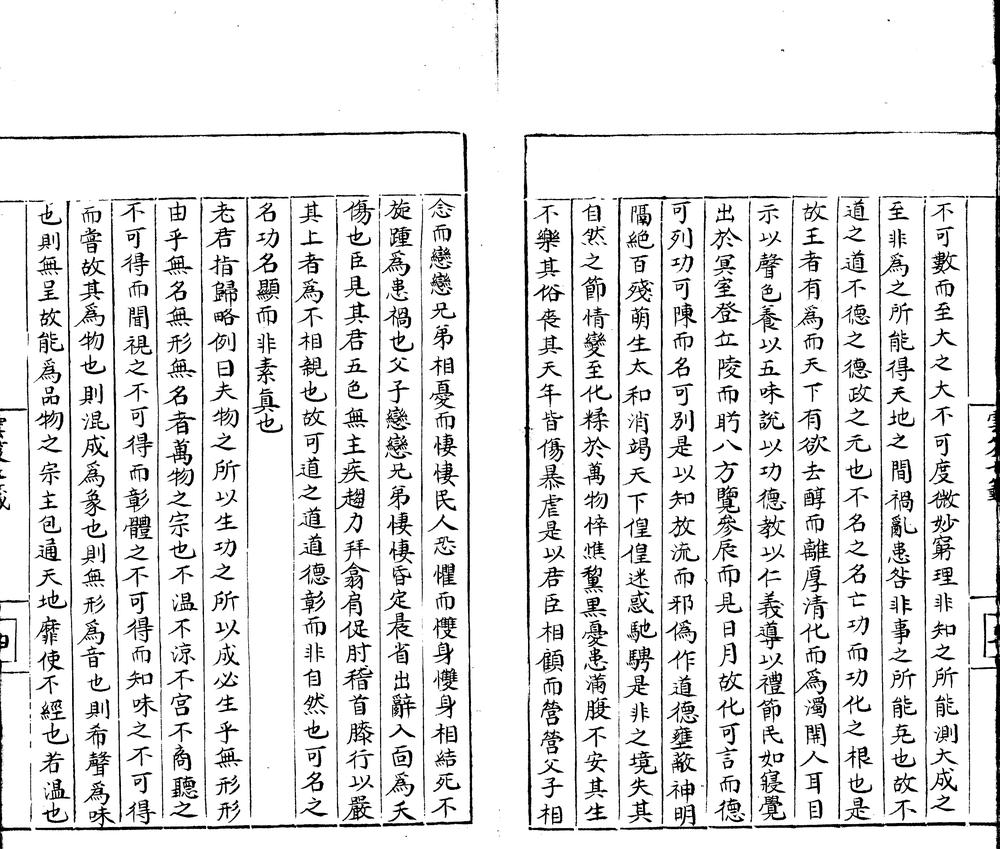 不可數而至大之大不可度微妙窮理非知之所能測大成之
至非爲之所能得天地之間禍亂患咎非事之所能克也故不
道之道不德之德政之元也不名之名亡功而功化之根也是
故王者有爲而天下有欲去醇而離厚清化而爲濁開人耳目
示以聲色養以五味說以功德教以仁義導以禮節民如寢覺
出於冥室登立陵而盻八方覽參辰而見日月故化可言而德
可列功可陳而名可別是以知放流而邪僞作道德壅蔽神明
隔絕百殘萌生太和消竭天下偟偟迷惑馳騁是非之境失其
自然之節情變至化糅於萬物悴憔黧黑憂患滿腹不安其生
不樂其俗喪其天年皆傷暴虐是以君臣相顧而營營父子相
念而戀戀兄弟相憂而悽悽民人恐懼而㦬身㦬身相結死不
旋踵爲患禍也父子戀戀兄弟悽悽昏定晨省出辭入面爲夭
傷也臣見其君五色無主疾趨力拜翕肩促肘稽首膝行以嚴
其上者爲不相親也故可道之道道德彰而非自然也可名之
名功名顯而非素真也
老君指歸略例曰夫物之所以生功之所以成必生乎無形形
由乎無名無形無名者萬物之宗也不温不涼不宮不商聽之
不可得而聞視之不可得而彰體之不可得而知味之不可得
而嘗故其爲物也則混成爲象也則無形爲音也則希聲爲味
也則無呈故能爲品物之宗主包通天地靡使不經也若温也